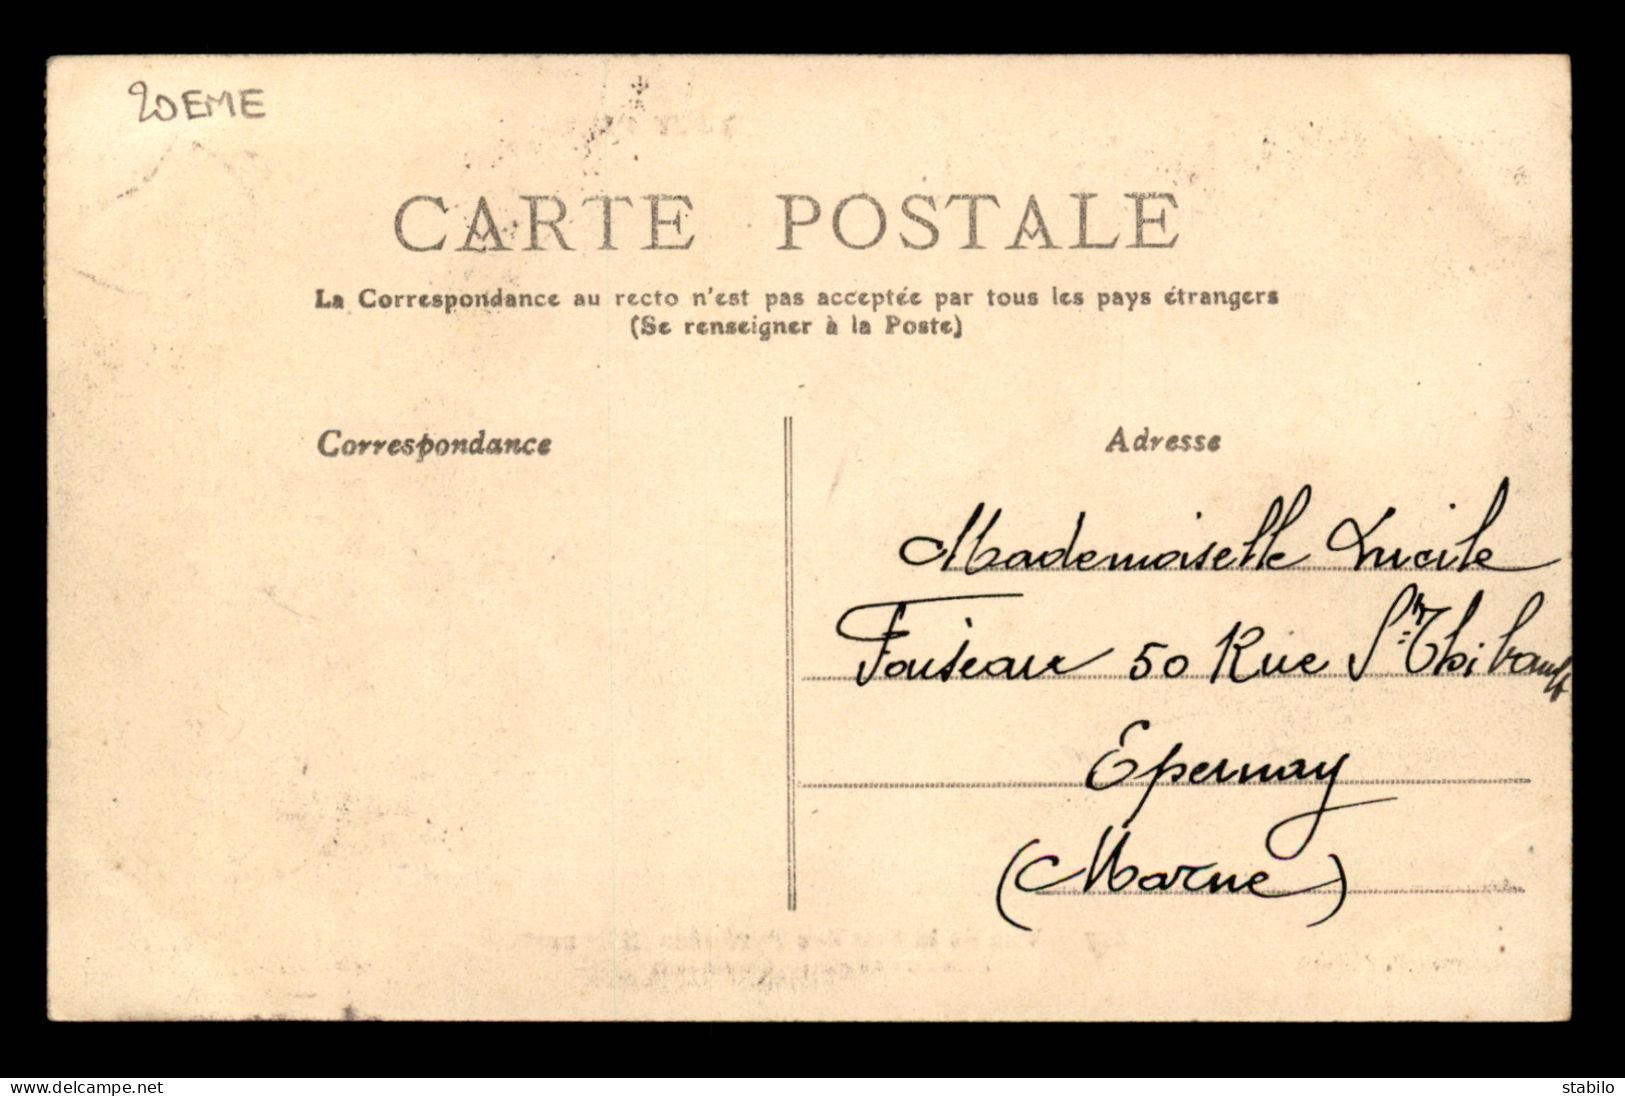 20EME
CARTE POSTALE
La Correspondance au recto n'est pas acceptée par tous les pays étrangers
(Se renseigner à la Poste)
Correspondance
Adresse
Mademoiselle Lucile
50 Rue St. Thibault
Epernay
(Marne)
www.delcampe.net
stabilo